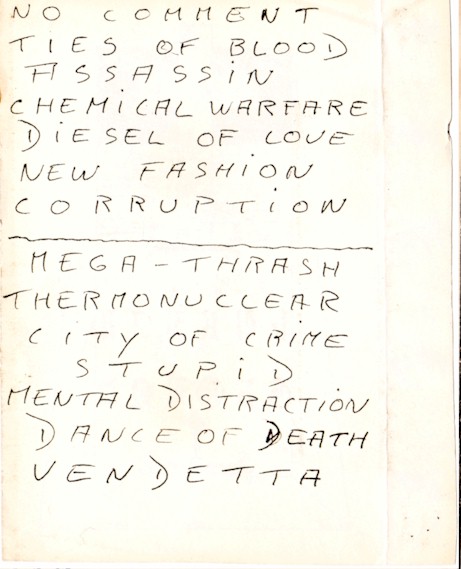 NO COMMENT
TIES OF BLOOD
ASSASSiN
CHEMiCAL WARFARE
DiESEL OF LOVE
NEW FASHiON
CORRUPTiON
MEGA-THRASH
THERMONUCLEAR
CiTY OF CRiME
STUPiD
MENTAL DISTRACTiON
DANCE OF DEATH
VENDETTA